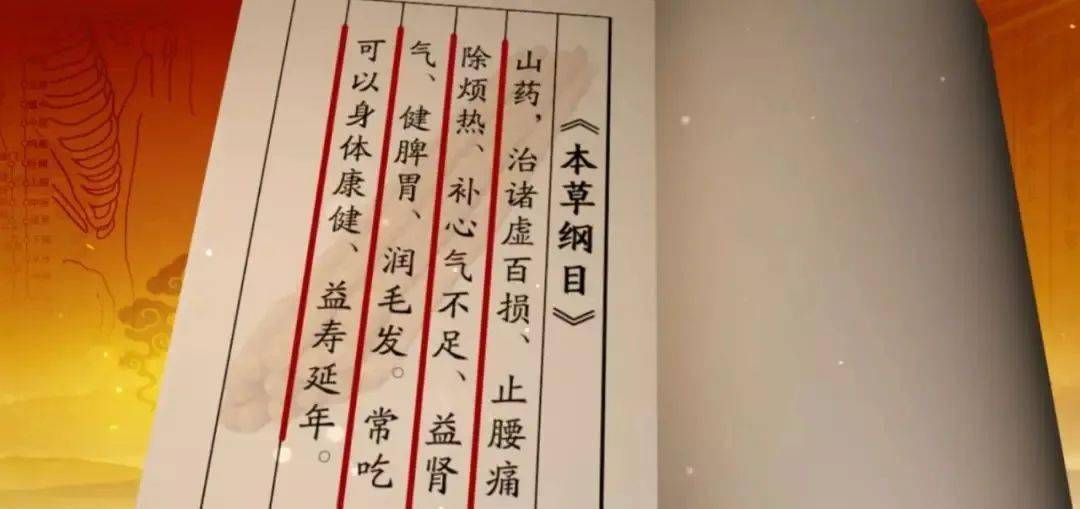 《本草纲目》
山药，治诸虚百损、止腰痛
除烦热、补心气不足、益肾
气、健脾胃、润毛发。常吃
可以身体康健、益寿延年。